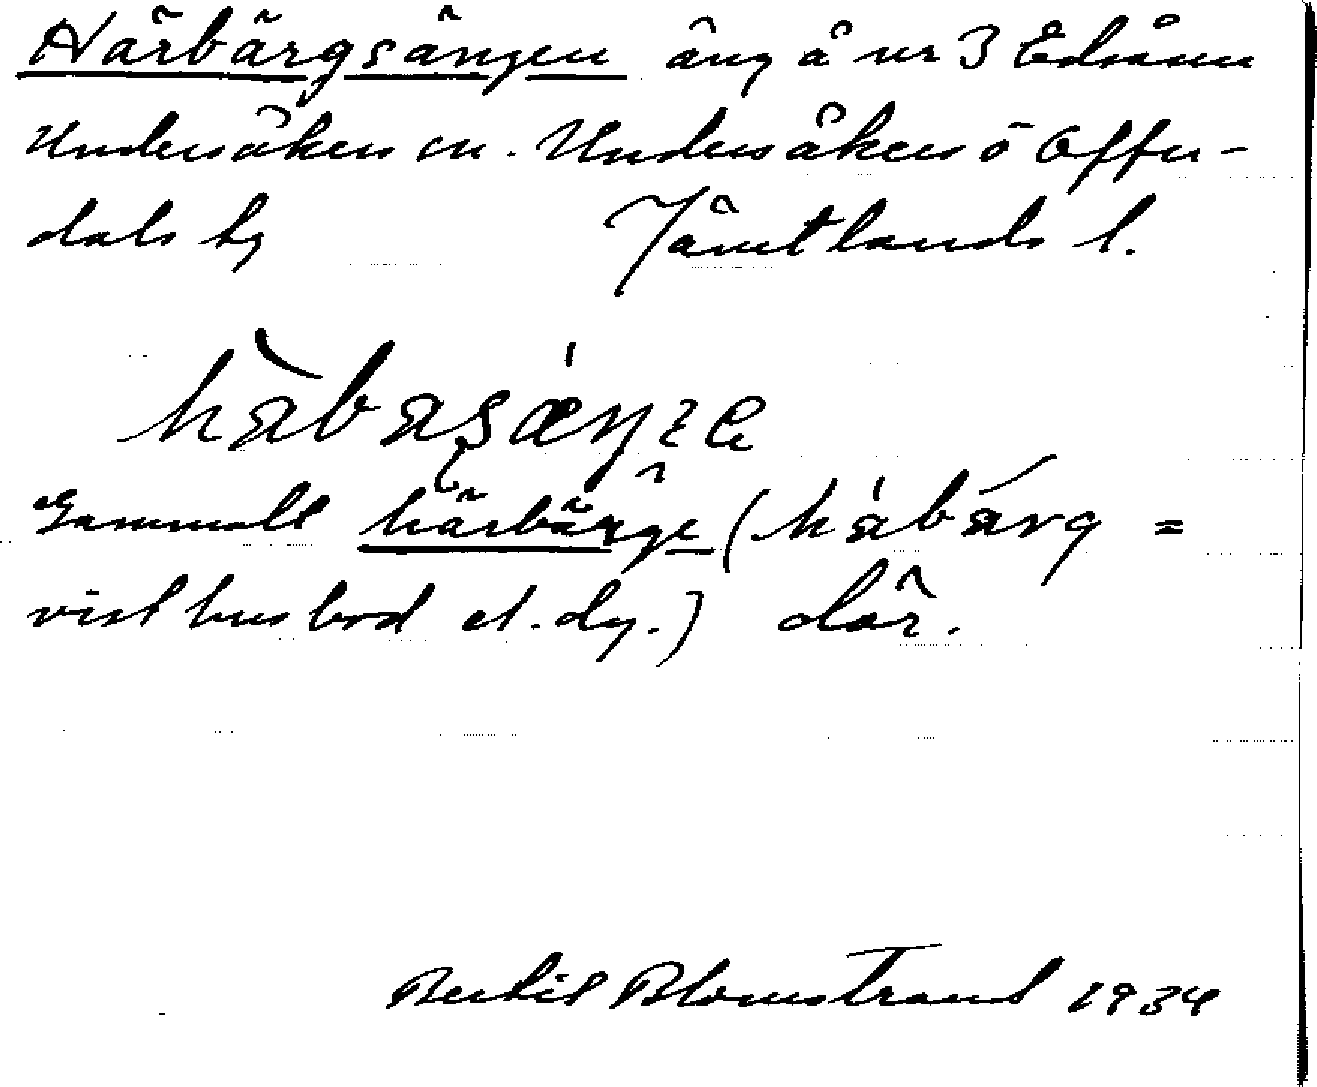 Härbärgsängen äng å nr 3 Edsåsen
Undersåkers sn. Undersåkers o Offer-
dals tg Jämtlands l.
hàbaşǽŋɀe
Gammalt härbärge (hábàrg =
visthusbod el. dy.) där.
Bertil Blomstrand 1934